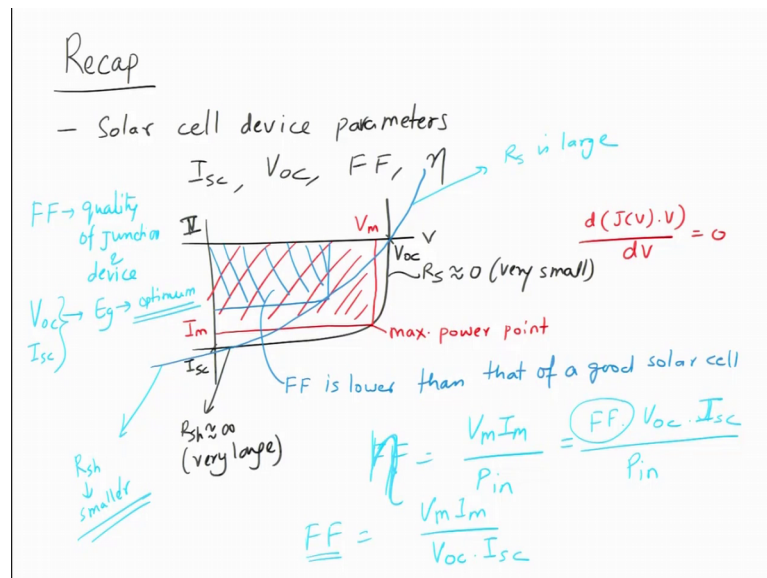 Recap
- Solar cell device parameters
Isc, Voc, FF, η
Rs is large
FF → quality
of junction
&
device
Voc } → Eg → optimum
Isc
IV
Vm
V
Voc
Rs ≈ 0 (very small)
d(J(V).V)
dV
= 0
Im
max. power point
Isc
FF is lower than that of a good solar cell
Rsh ≈ ∞
(very large)
Rsh
↓
smaller
η = VmIm / Pin = FF. Voc. Isc / Pin
FF = VmIm / Voc. Isc